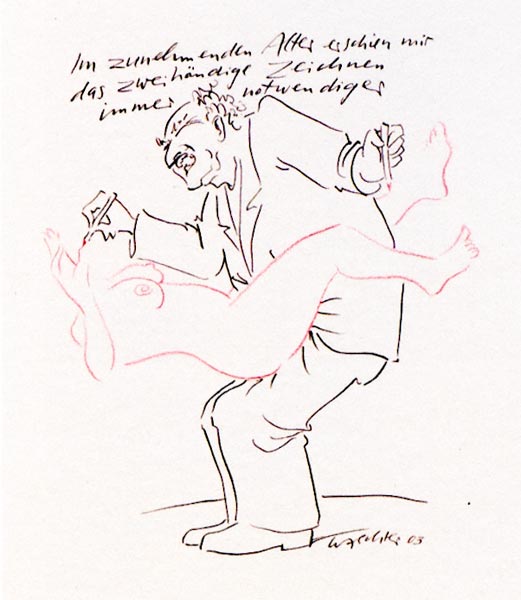 Im zunehmenden Alter erschien mir
das zweihändige Zeichnen
immer notwendiger
03